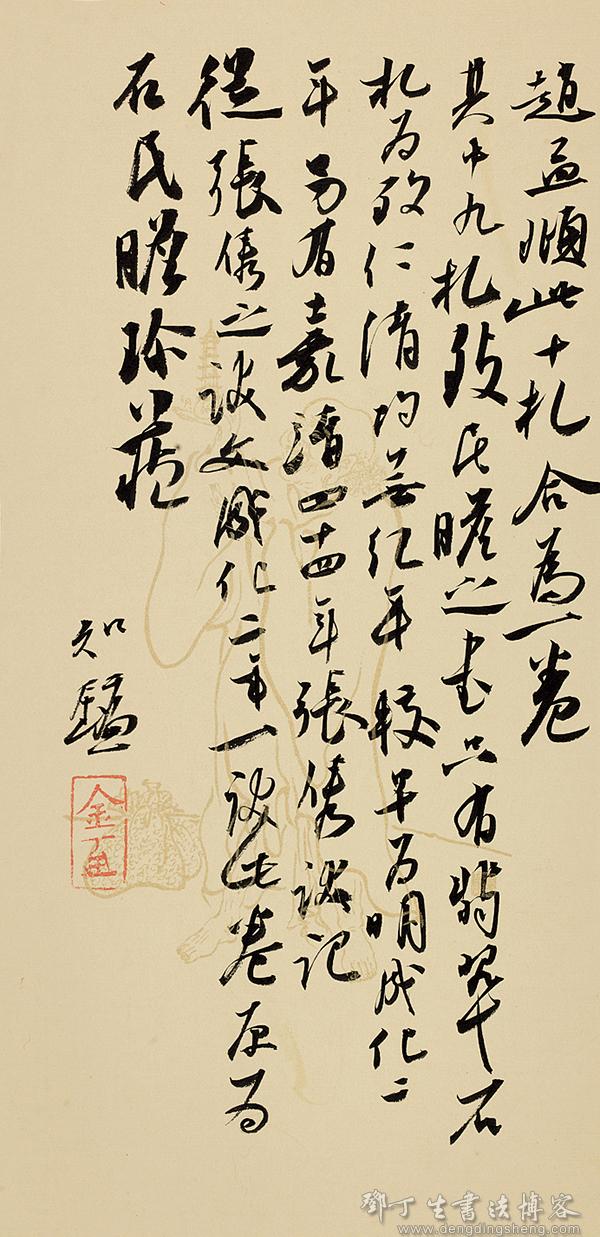 趙孟頫此十札合為一卷
其中九札致民瞻之書只有翡翠石
札為致仁清均無紀年較早為明成化二
年另有嘉清四十四年張儁跋記
從張儁之跋文成化二年一跋此卷原為
石民瞻珍藏
知鑑
鄧丁生書法博客
www.dengdingsheng.com